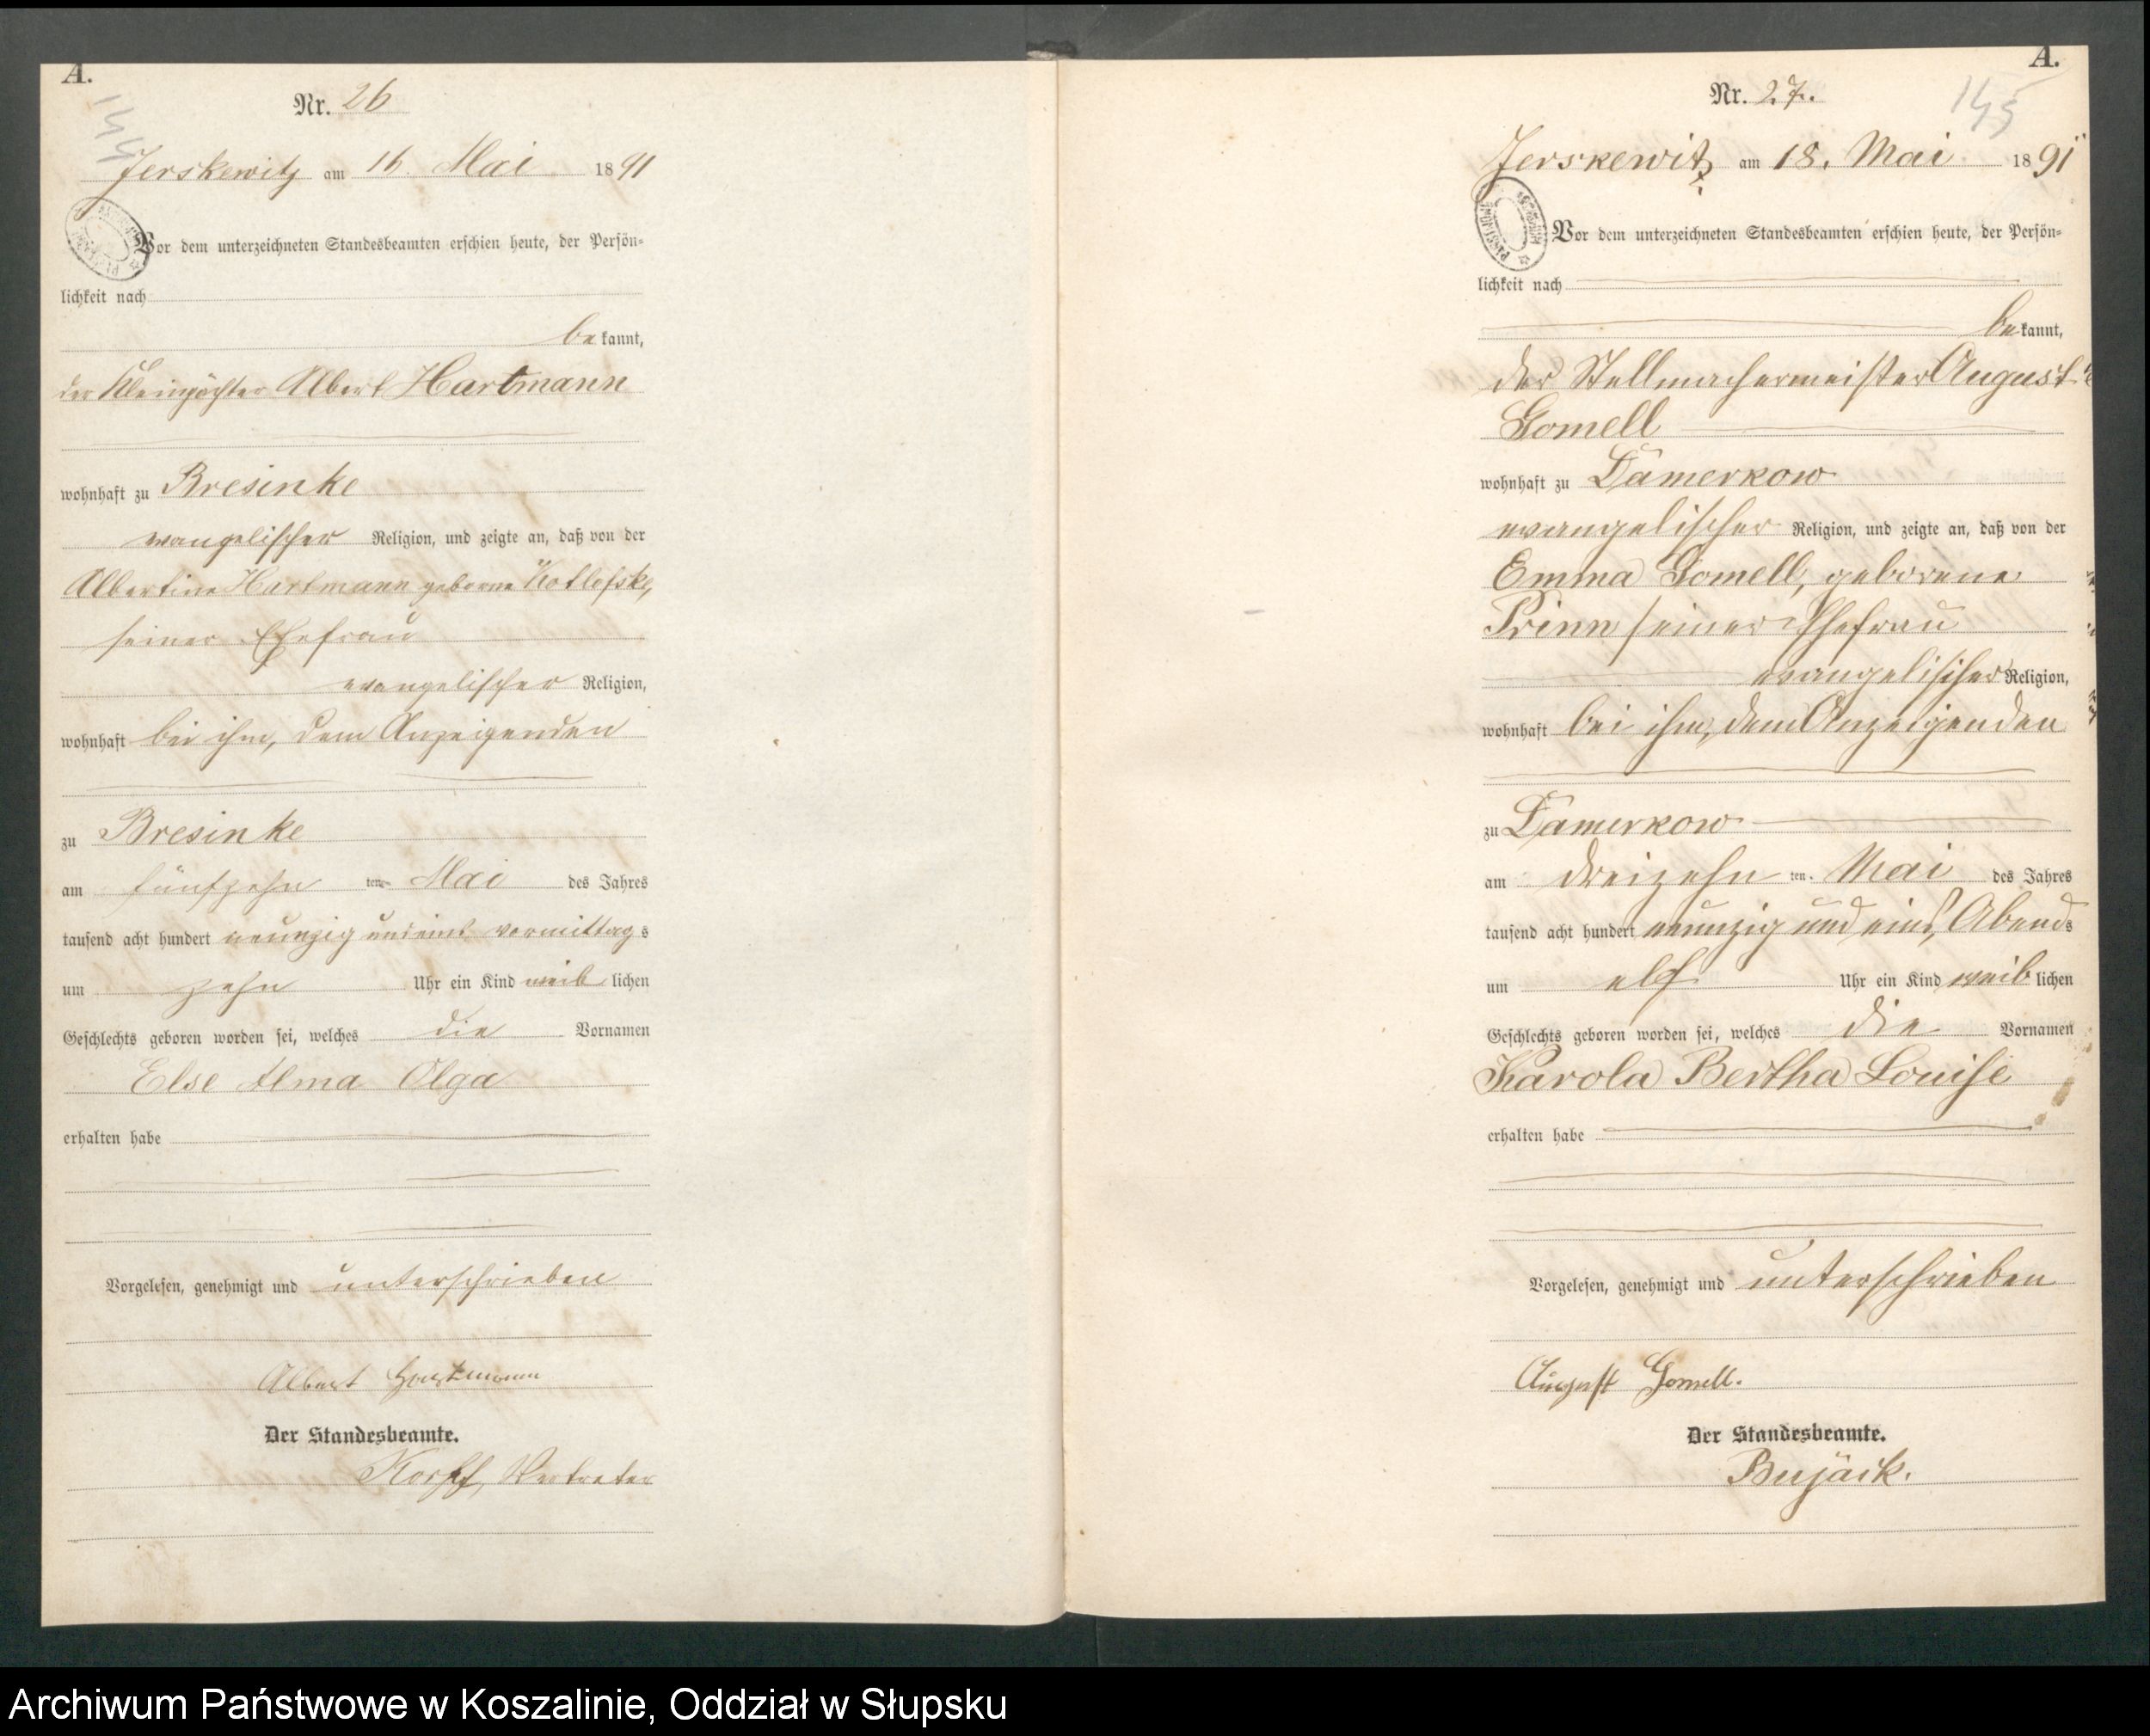 A.
Nr. 26
144
Jerskewitz am 16. Mai 1891
Vor dem unterzeichneten Standesbeamten erschien heute, der Persön=
lichkeit nach
bekannt,
der Kleinpächter Albert Hartmann
wohnhaft zu Bresinke
evangelischer Religion, und zeigte an, daß von der
Albertine Hartmann geborne Kotlofske,
seiner Ehefrau
evangelischer Religion,
wohnhaft bei ihm, dem Anzeigenden
zu Bresinke
am fünfzehn ten Mai des Jahres
tausend acht hundert neunzig und eins vormittags
um zehn Uhr ein Kind weiblichen
Geschlechts geboren worden sei, welches die Vornamen
Else Alma Olga
erhalten habe
Vorgelesen, genehmigt und unterschrieben
Albert Hartmann
Der Standesbeamte.
Korff, Vertreter
A.
Nr. 27.
145
Jerskewitz am 18. Mai 1891
Vor dem unterzeichneten Standesbeamten erschien heute, der Persön=
lichkeit nach
bekannt,
der Stellmachermeister August
Gomell
wohnhaft zu Damerkow
evangelischer Religion, und zeigte an, daß von der
Emma Gomell, geborene
Prinn seiner Ehefrau
evangelischer Religion,
wohnhaft bei ihm, dem Anzeigenden
zu Damerkow
am dreizehn ten. Mai des Jahres
tausend acht hundert neunzig und eins, Abends
um elf Uhr ein Kind weiblichen
Geschlechts geboren worden sei, welches die Vornamen
Karola Bertha Louise
erhalten habe
Vorgelesen, genehmigt und unterschrieben
August Gomell.
Der Standesbeamte.
Bujäck.
Archiwum Państwowe w Koszalinie, Oddział w Słupsku